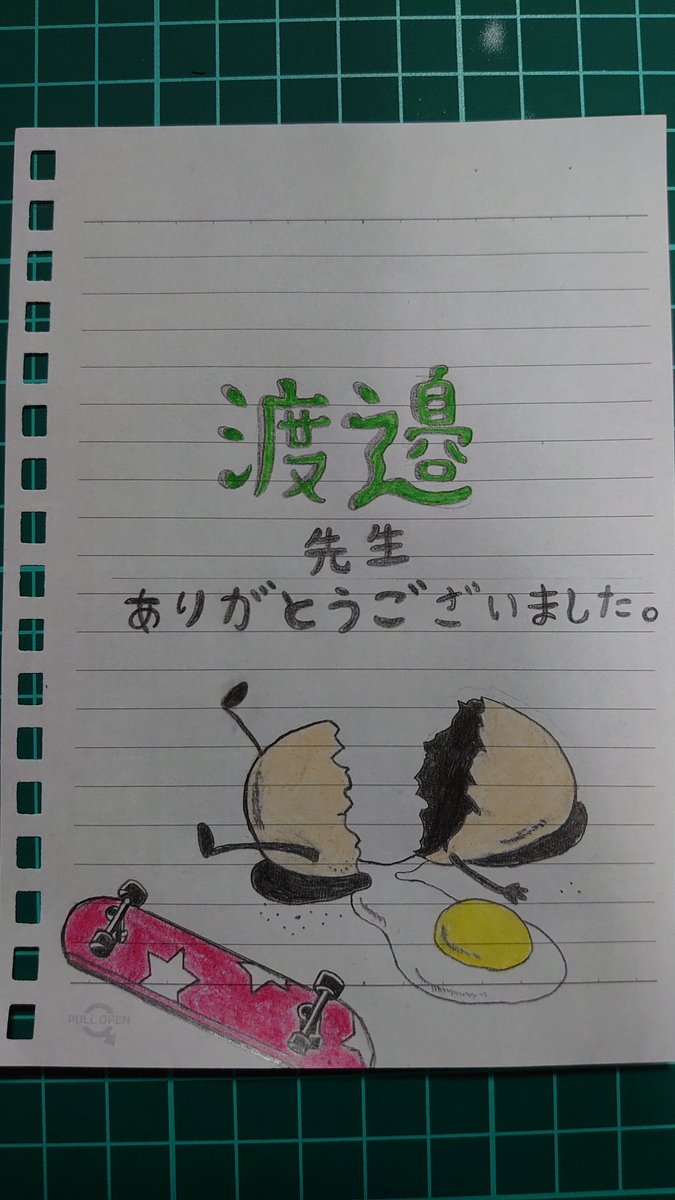 渡邉
先生
ありがとうございました。
PULL OPEN